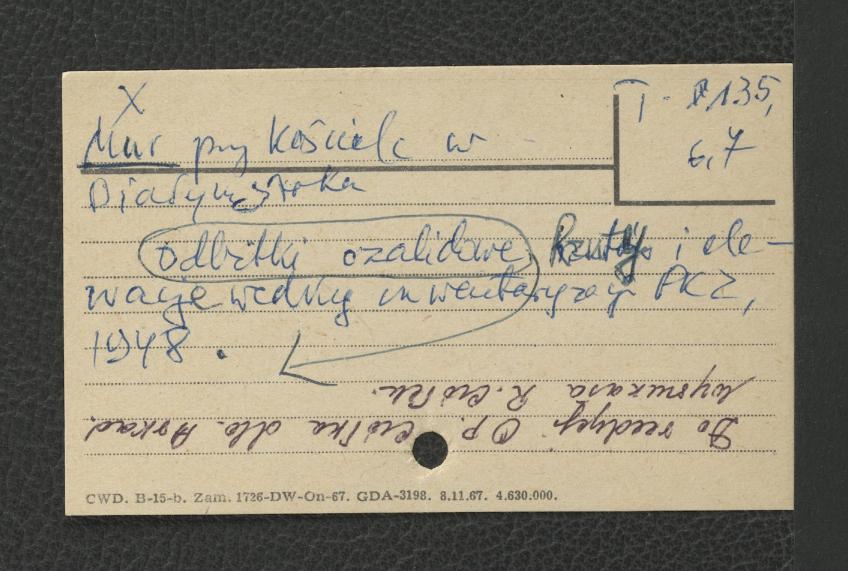 X
T - 8135,
6,7
Mur przy Kościele w
Białymstoku
odbitki ozalidowe. Rzuty i ele-
wacje według inwentaryzacji PKZ,
1948.
wypożycza R.
Do redakcji Op. dla Arkad.
CWD. B-15-b. Zam. 1726-DW-On-67. GDA-3198. 8.11.67. 4.630.000.